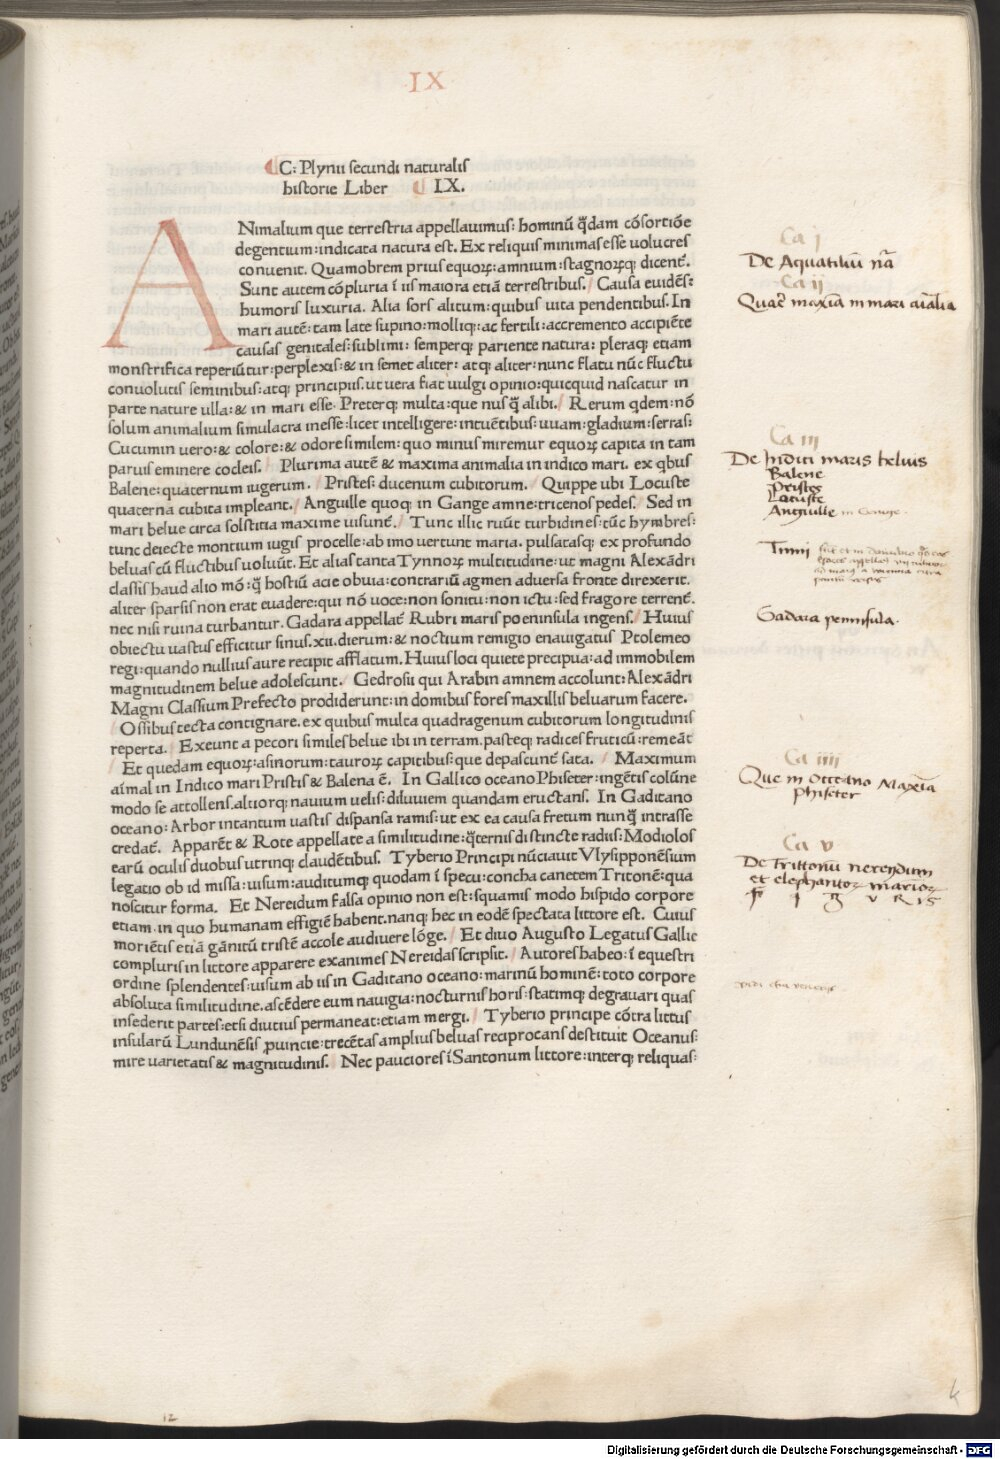 ·IX
C: Plynii secundi naturalis
historie Liber IX.
ANimalium que terrestria appellauimus: hominū q̄dam cōsortiōe
degentium: indicata natura est. Ex reliquis minimas esse uolucres
conuenit. Quamobrem prius equoꝝ: amnium: stagnoꝝqꝫ dicent̄.
Sunt autem cōpluria ī iis maiora etiā terrestribus. Causa euidēs:
humoris luxuria. Alia sors alitum: quibus uita pendentibus. In
mari autē: tam late supino: molliqꝫ: ac fertili: accremento accipiēte
causas genitales: sublimi: semperqꝫ pariente natura: pleraqꝫ etiam
monstrifica reperiūtur: perplexis: & in semet aliter: atqꝫ aliter: nunc flatu nūc fluctu
conuolutis seminibus: atqꝫ principiis. ut uera fiat uulgi opinio: quicquid nascatur in
parte nature ulla: & in mari esse. Preterqꝫ multa: que nusq̄ alibi. Rerum qdem: nō
solum animalium simulacra inesse: licet intelligere: intuētibus: uuam: gladium: serras:
Cucumin uero: & colore: & odore similem: quo minus miremur equoꝝ capita in tam
paruis eminere cocleis. Plurima autē & maxima animalia in indico mari. ex qbus
Balene: quaternum iugerum. Pristes: ducenum cubitorum. Quippe ubi Locuste
quaterna cubita impleant. Anguille quoqꝫ in Gange amne: tricenos pedes. Sed in
mari belue circa solstitia maxime uisunt̄. Tunc illic ruūt turbidines: tūc hymbres:
tunc deiecte montium iugis procelle: ab imo uertunt maria. pulsatasqꝫ ex profundo
beluas cū fluctibus uoluūt. Et alias tanta Tynnoꝝ multitudine: ut magni Alexādri
classis haud alio mō: q̄ hostiū acie obuia: contrariū agmen aduersa fronte direxerit.
aliter sparsis non erat euadere: qui nō uoce: non sonitu: non ictu: sed fragore terrent̄.
nec nisi ruina turbantur. Gadara appellat̄ Rubri maris poeninsula ingens. Huius
obiectu uastus efficitur sinus. xii. dierum: & noctium remigio enauigatus Ptolemeo
regi: quando nullius aure recipit afflatum. Huius loci quiete precipua: ad immobilem
magnitudinem belue adolescunt. Gedrosii qui Arabin amnem accolunt: Alexādri
Magni Classium Prefecto prodiderunt: in domibus fores maxillis beluarum facere.
Ossibus tecta contignare. ex quibus multa quadragenum cubitorum longitudinis
reperta. Exeunt a pecori similes belue ibi in terram. pasteqꝫ radices fruticū: remeāt
Et quedam equoꝝ: asinorum: tauroꝝ capitibus: que depascunt̄ sata. Maximum
aīmal in Indico mari Pristis & Balena ē. In Gallico oceano Phiseter: ingētis colūne
modo se attollens. altiorqꝫ nauium uelis: diluuiem quandam eructans. In Gaditano
oceano: Arbor intantum uastis dispansa ramis: ut ex ea causa fretum nunq̄ intrasse
credat̄. Apparēt & Rote appellate a similitudine: q̄ternis distincte radiis: Modiolos
earū oculis duobus utrinqꝫ claudētibus. Tyberio Principi nūciauit Vlysipponēsium
legatio ob id missa: uisum: auditumqꝫ quodam ī specu: concha canetem Tritonē: qua
noscitur forma. Et Nereidum falsa opinio non est: squamis modo hispido corpore
etiam. in quo humanam effigiē habent. nanqꝫ hec in eodē spectata littore est. Cuius
moriētis etiā gānitū tristē accole audiuere lōge. Et diuo Augusto Legatus Gallie
compluris in littore apparere exanimes Nereidas scripsit. Autores habeo: ī equestri
ordine splendentes: uisum ab iis in Gaditano oceano: marinū hominē: toto corpore
absoluta similitudine. ascēdere eum nauigia: nocturnis horis: statimqꝫ degrauari quas
insederit partes: etsi diutius permaneat: etiam mergi. Tyberio principe cōtra littus
insularū Lundunēsis ꝓuincie: trecētas amplius beluas reciprocans destituit Oceanus:
mire uarietatis & magnitudinis. Nec pauciores ī Santonum littore: interqꝫ reliquas:
Ca j
De Aquatiliū nā
Ca ij
Quaꝛ maxīa in mari aīalia
Ca iij
De Inditi maris beluis
Balene
Pristes
Locuste
Anguille in Gange.
Tinni
Gadara peninsula.
Ca iiij
Que in Occeano Maxīa
phiseter
Ca v
De Trittonū nereydum
et elephantoꝝ marioꝝ
k
12
Digitalisierung gefördert durch die Deutsche Forschungsgemeinschaft - DFG